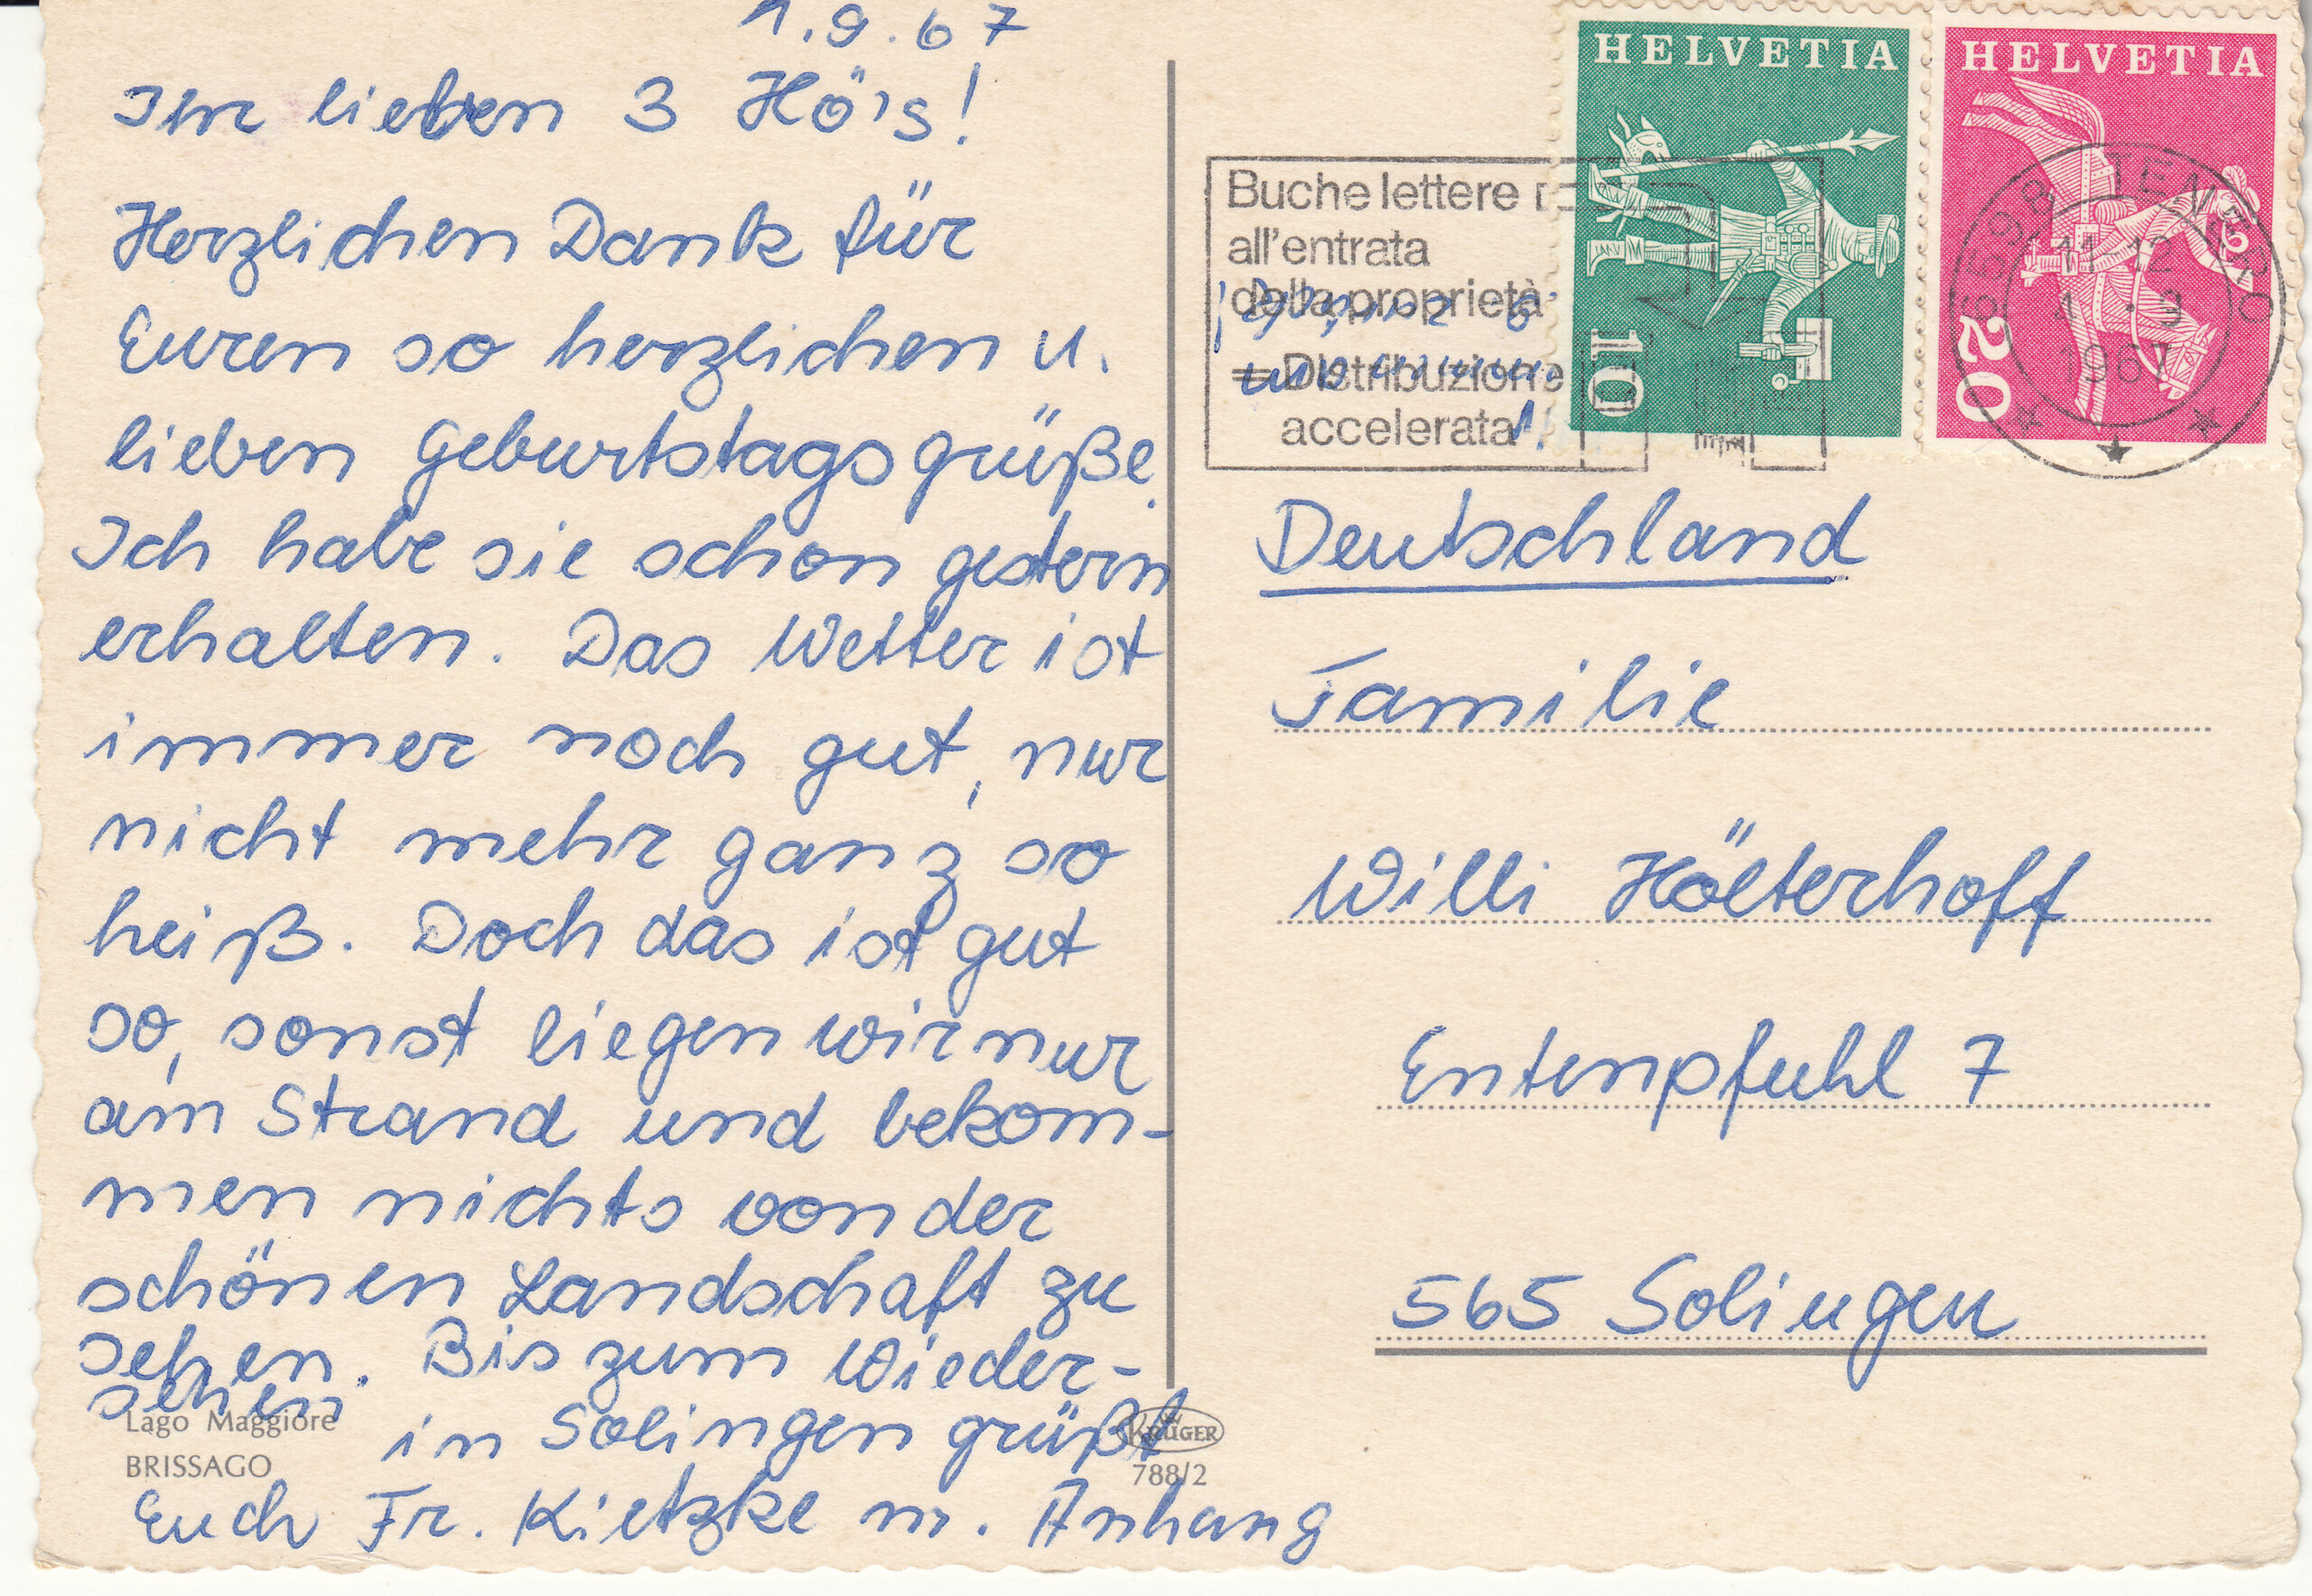 1.9.67
Ihr lieben 3 Hö's!
Herzlichen Dank für
Euren so herzlichen u.
lieben Geburtstagsgrüße.
Ich habe sie schon gestern
erhalten. Das Wetter ist
immer noch gut, nur
nicht mehr ganz so
heiß. Doch das ist gut
so, sonst liegen wir nur
am Strand und bekom-
men nichts von der
schönen Landschaft zu
sehen. Bis zum Wieder-
sehen in Solingen grüßt
Euch Fr. Kietzke m. Anhang
Lago Maggiore
BRISSAGO
KRÜGER
788/2
HELVETIA
10
HELVETIA
20
Buche lettere
all'entrata
della proprietà
= Distribuzione
accelerata
6598 TENERO
11-12
1.-9
1967
Deutschland
Familie
Willi Hölterhoff
Entenpfuhl 7
565 Solingen